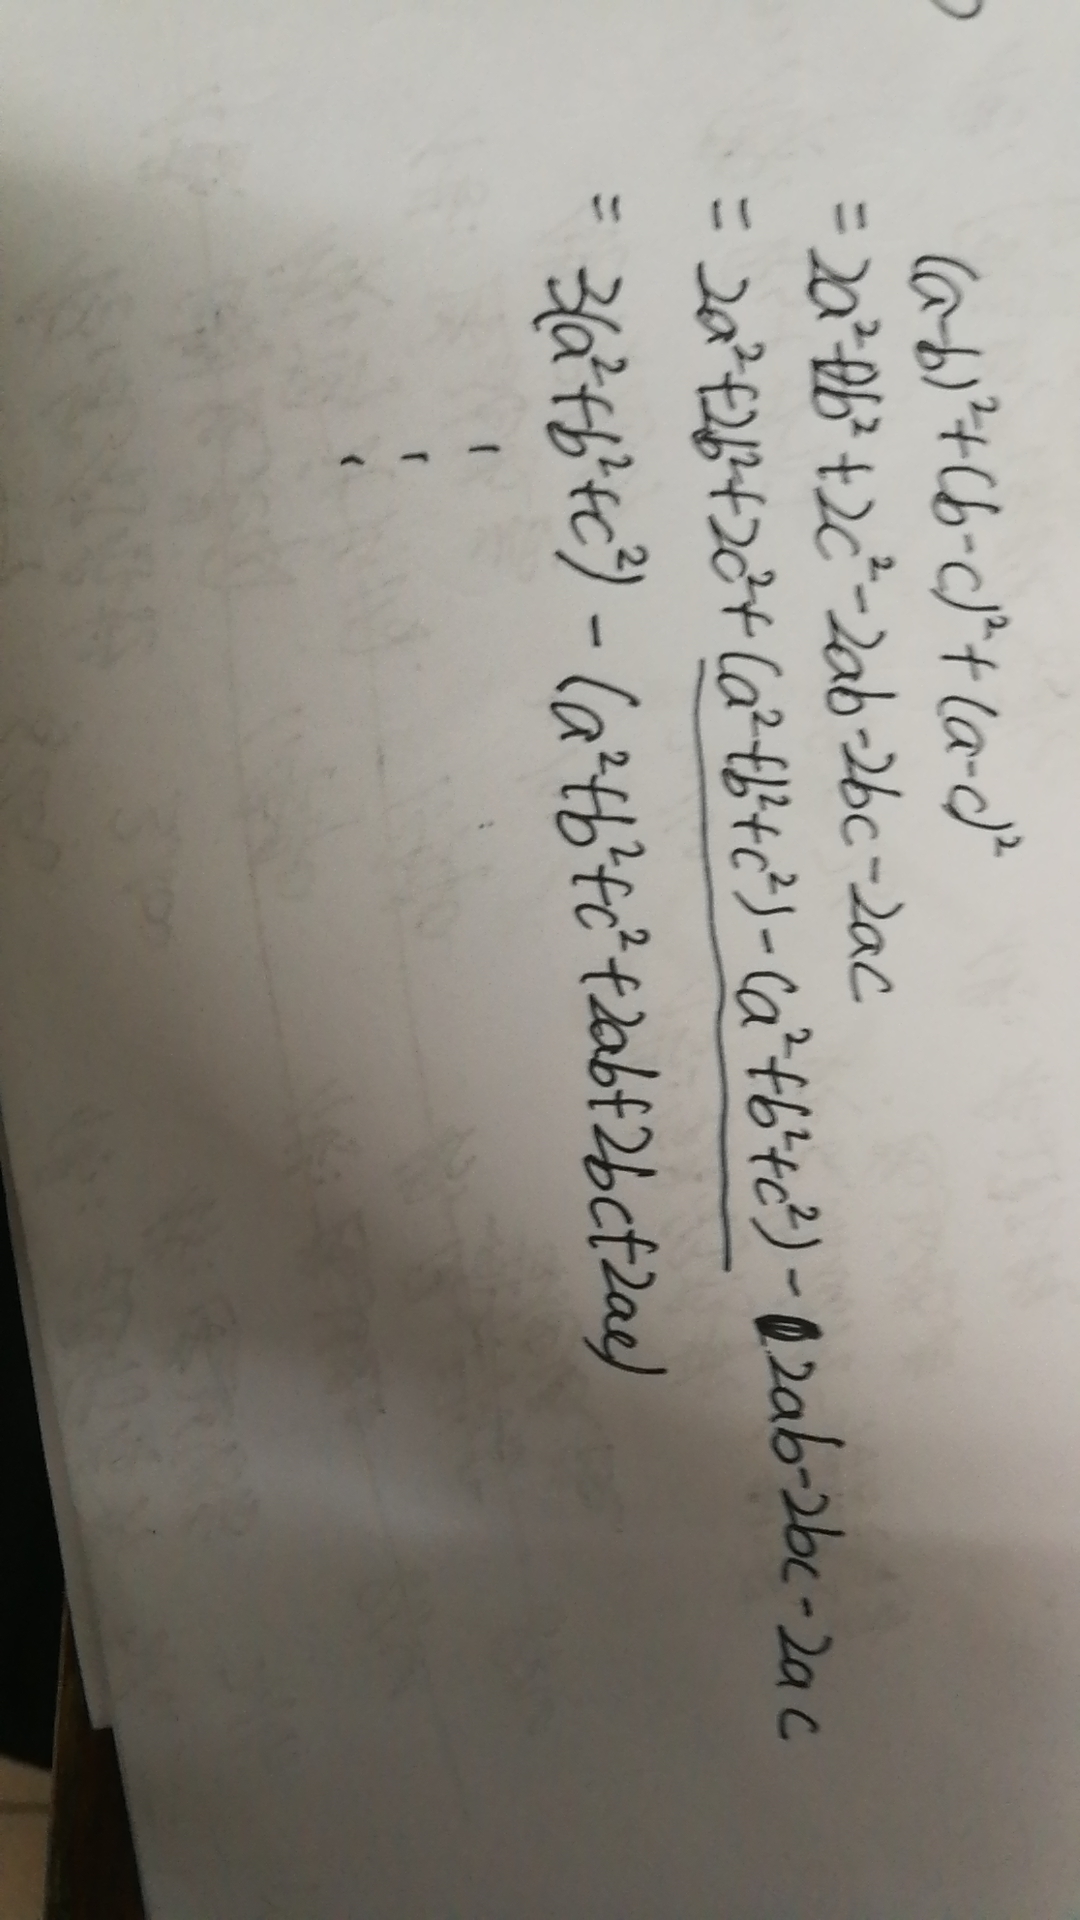 (a-b)²+(b-c)²+(a-c)²
= 2a²+2b²+2c²-2ab-2bc-2ac
= 2a²+2b²+2c²+(a²+b²+c²)-(a²+b²+c²)-2ab-2bc-2ac
= 3(a²+b²+c²)-(a²+b²+c²+2ab+2bc+2ac)